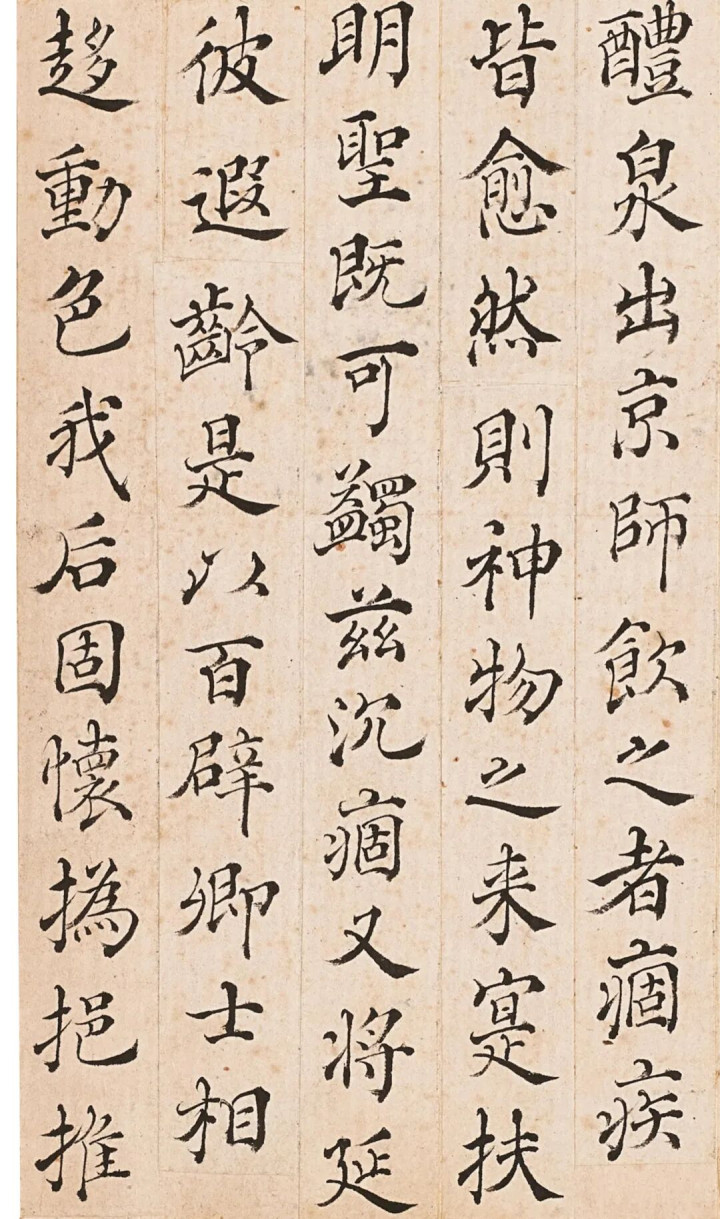 醴泉出京師飲之者痼疾
皆愈然則神物之来寔扶
明聖既可蠲茲沉痼又将延
彼遐齡是以百辟卿士相
趍動色我后固懷撝挹推